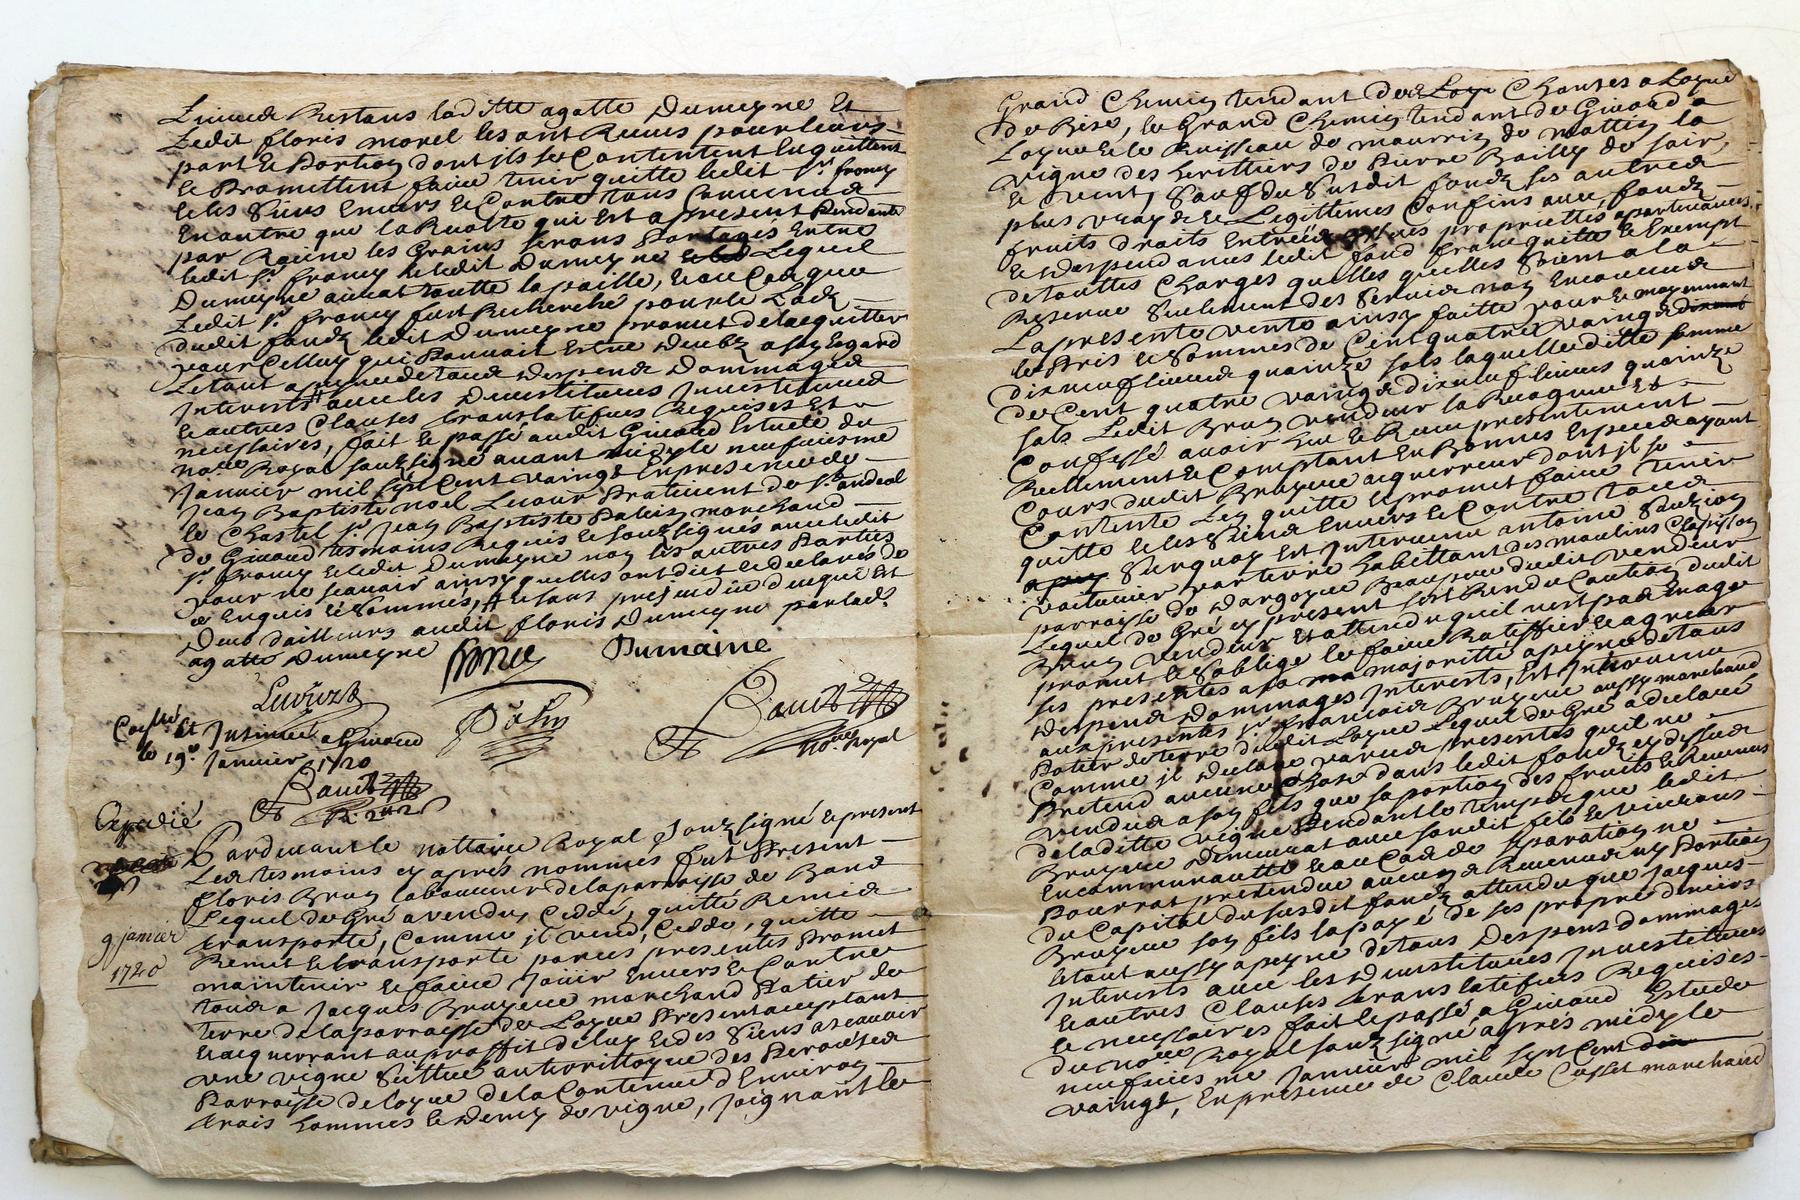 Livres Restans laditte agatte Dumeyne Et
Ledit floris morel les ont Reçus pour leurs
part Et Portion dont ils se Contentent En quittent
Et Promettent faire tenir quitte ledit Sr. francy
Et les Siens Envers Et Contre tous Convenu
En outre que la Ruolte qui Est a present Pendante
par Racine les Grains seront Partagés Entre
ledit Sr. francy Et ledit Dumeyne Lequel
Dumeyne aurat toutte la paille, Et au Cas que
Ledit Sr. francy fust Recherché pour le Lods
dudit fondz ledit Dumeyne promet de l'acquitter
pour Celluy qui Pouvait Estre Deubz a son Esgard
Le tout a peyne de tous despens Dommages
Interests avec les Devestitures Investitures
Et autres Clauses translatives Requises Et
necessaires, fait Et passé audit Givord Estude du
nore. Royal soubzsigné avant midy le neufviesme
Janvier mil sept Cent vaingt En presence de
Jean Baptiste noel Lucour Praticient de St. andeol
le Chastel Sr. Jean Baptiste Palis marchand
de Givord tesmoins Requis Et soubsignés avec ledit
Sr. francy Et ledit Dumeyne non les autres Parties
pour ne sçavoir ainsy quelles ont dict Et declaré de
ce Enquis Et Sommés, Et sans prejudice de ce qui Est
Deub dailleurs audit floris Dumeyne par lad.
agatte Dumeyne
Dumaine
nore. Royal
Collé. Et Intimé a Givord
le 19e. Janvier 1720
Expedié
Pardevant le nottaire Royal Soubzsigné Et present
Les tesmoins cy aprés nommés fut Present
floris Brun laboureur de la parroisse de Bans
Lequel de Gré a vendu, Ceddé, quitté Remis
9 janvier
1720
transporté, Comme il vend, Cedde, quitte
Remet Et transporte par ces presentes Promet
maintenir Et faire Jouir Envers Et Contre
tous a Jacques Bruyere marchand Potier de
terre de la parroisse de Loyre Present acceptant
Et acquerrant au proffit de luy Et des Siens a sçavoir
une vigne Scittuée au territtoire des
Parroisse de Loyre de la Contenue d'Environ
trois hommés Et Demy de vigne, Joignant le
Grand Chemin tendant des Chantes a Loyre
de Bise, le Grand Chemin tendant de Givord a
Loyre Et le Ruisseau de mourrin de mattin la
vigne des heritiers de Pierre Bailly de soir
Et vent, Sauf du Susdit fondz ses autres
plus vrays Et Legittimes Confins avec fondz
fruits droits Entrées proprietés apartenances
Et Despendances ledit fond franc quitte Et Exempt
de touttes Charges quelles quelles Soient a la
Reserve Seulement des Servis non Encourus
La presente vente ainsy faitte pour Et moyennant
le Pris Et Somme de Cent quatre vaingt
dixneuf livres quainze sols laquelle ditte somme
de Cent quatre vaingt dixneuf livres quainze
sols Ledit Brun vendeur la Recogneu Et
Confessé avoir Eue Et Reçue presentement
Reellement Et Comptant En Bonnes Especes ayant
Cours dudit Bruyere acquerreur dont il se
Contente Len quitte Et promet faire tenir
quitte Et les Siens Envers Et Contre tous
Surquoy Est Intervenu antoine Souzion
voiturier par terre habittant des moulins Chapison
parroisse de Dargoyre Beaupere dudit vendeur
Lequel de Gré cy present sest Rendu Caution dudit
Brun vendeur Et attendu quil nest pas Enage
promet Et Soblige le faire Ratiffier Et agreer
les presentes a sa majoritté a peyne de tous
despens Dommages Interests, Est Intervenu
aux presentes Sr. francois Bruyere aussy marchand
Potier de terre dudit Loyre Lequel de Gré a declaré
Comme il Declare par ces presentes quil ne
Pretend aucune Chose dans ledit fondz cy dessus
vendu a son fils que sa portion des fruits Et Revenus
de laditte vigne Pendant le temps que ledit
Bruyere Demeurat avec sondit fils Et vivrons
En communautté Et au Cas de Separation ne
Pourrat pretendre aucuns Revenus ny Portion
du Capital du susdit fondz attendu que Jacques
Bruyere son fils la payé de ses propre deniers
Le tout aussy a peyne de tous Despens dommages
Interests avec les Devestitures Investitures
Et autres Clauses translatifves Requises
Et necessaires fait Et passé a Givord Estude
du nore. Royal soubzsigné aprés midy le
neufviesme Janvier mil sept Cent
vaingt, En presence de Claude marchand